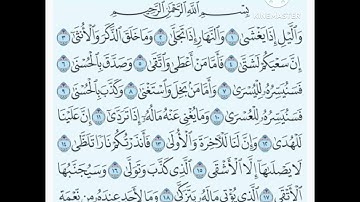 بِسْمِ اللَّهِ الرَّحْمَٰنِ الرَّحِيمِ
وَالَّيْلِ إِذَا يَغْشَىٰ ١ وَالنَّهَارِ إِذَا تَجَلَّىٰ ٢ وَمَا خَلَقَ الذَّكَرَ وَالْأُنثَىٰ ٣
إِنَّ سَعْيَكُمْ لَشَتَّىٰ ٤ فَأَمَّا مَنْ أَعْطَىٰ وَاتَّقَىٰ ٥ وَصَدَّقَ بِالْحُسْنَىٰ ٦
فَسَنُيَسِّرُهُ لِلْيُسْرَىٰ ٧ وَأَمَّا مَنْ بَخِلَ وَاسْتَغْنَىٰ ٨ وَكَذَّبَ بِالْحُسْنَىٰ ٩
فَسَنُيَسِّرُهُ لِلْعُسْرَىٰ ١٠ وَمَا يُغْنِي عَنْهُ مَالُهُ إِذَا تَرَدَّىٰ ١١ إِنَّ عَلَيْنَا
لَلْهُدَىٰ ١٢ وَإِنَّ لَنَا لَلْآخِرَةَ وَالْأُولَىٰ ١٣ فَأَنذَرْتُكُمْ نَارًا تَلَظَّىٰ ١٤
لَا يَصْلَاهَا إِلَّا الْأَشْقَى ١٥ الَّذِي كَذَّبَ وَتَوَلَّىٰ ١٦ وَسَيُجَنَّبُهَا
الْأَتْقَى ١٧ الَّذِي يُؤْتِي مَالَهُ يَتَزَكَّىٰ ١٨ وَمَا لِأَحَدٍ عِندَهُ مِن نِّعْمَةٍ
KINEMASTER